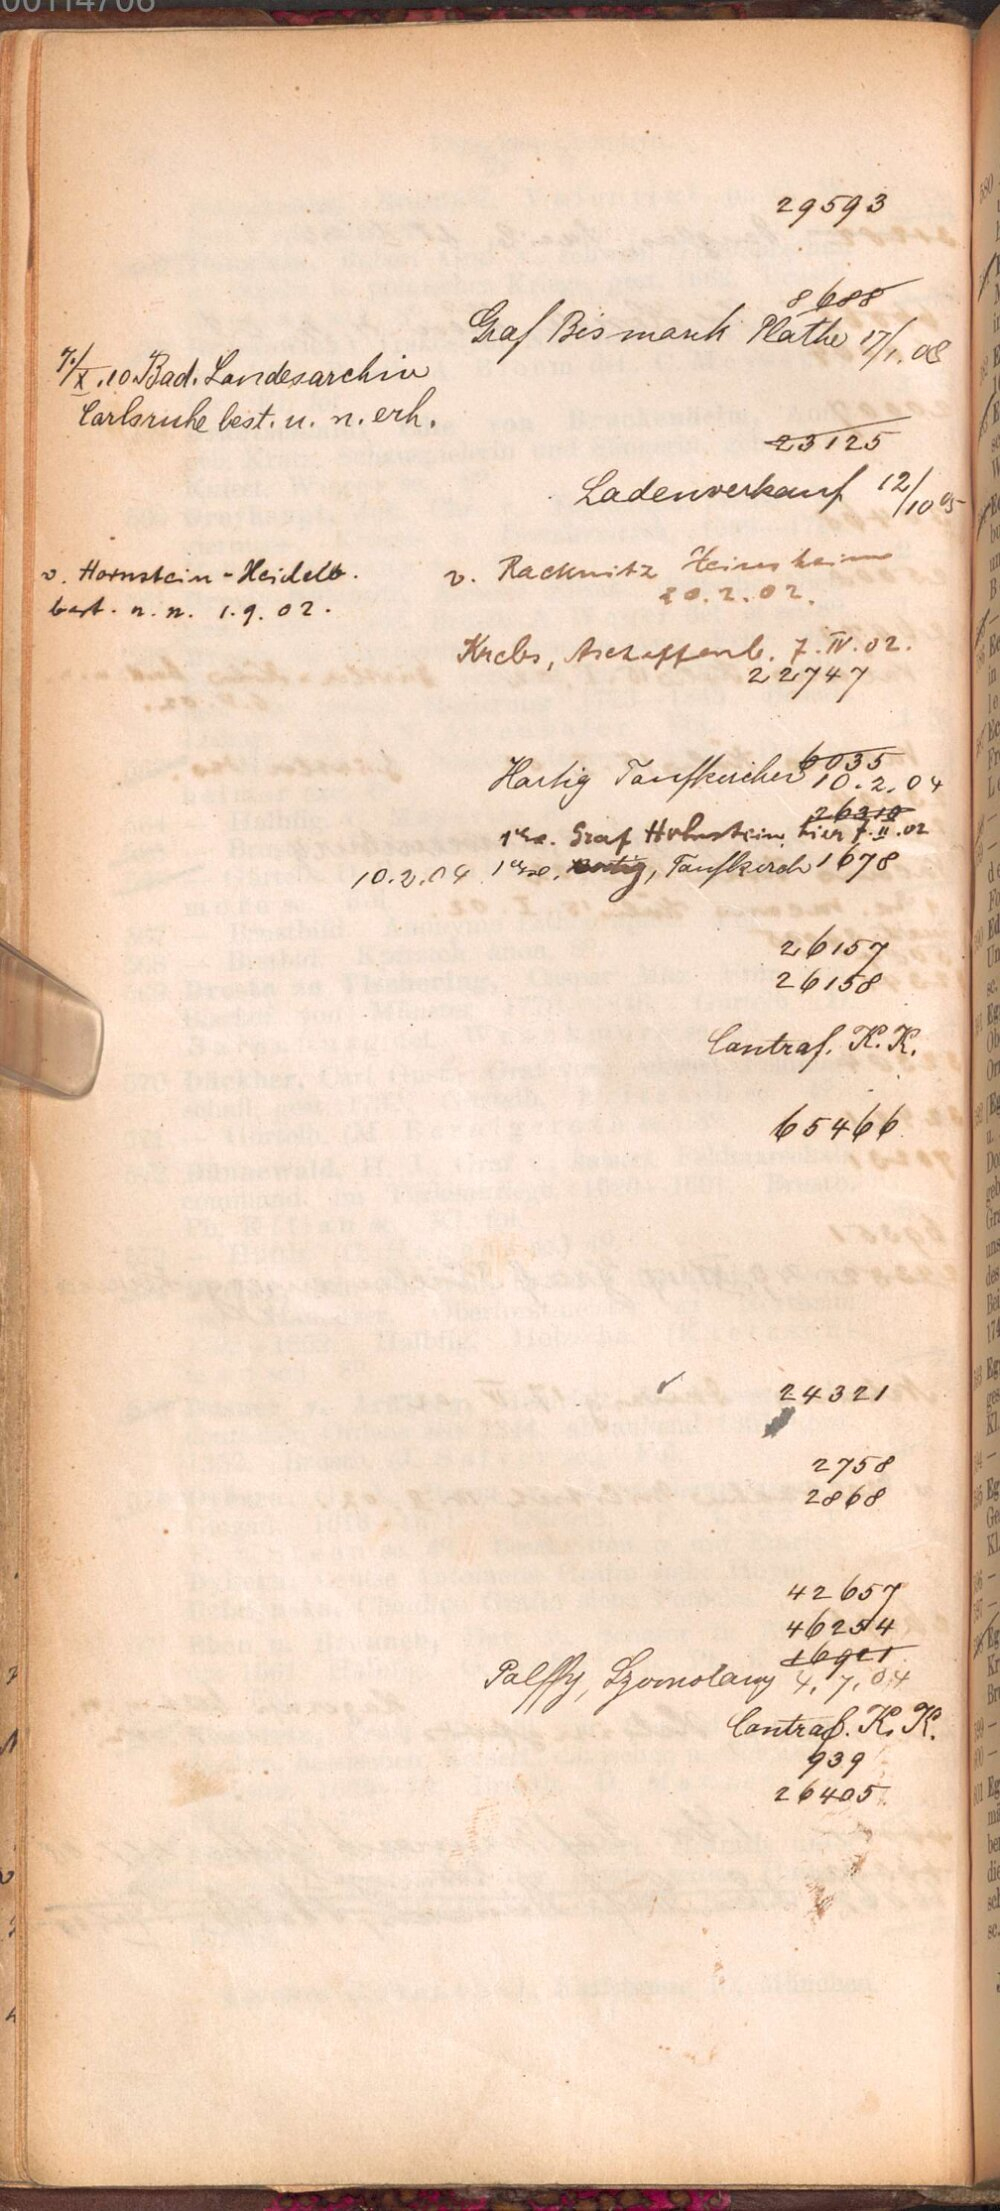 00114706
29593
8688
Graf Bismark Plathe 17/1.08
7./X.10 Bad. Landesarchiv
Carlsruhe best. u. n. erh.
23125
Ladenverkauf 12/10 05
v. Hornstein-Heidelb.
best. n. n. 1.9.02.
v. Racknitz Heinsheim
20.2.02.
Krebs, Aschaffenb. 7.IV.02.
22747
6035
Hartig Taufkirchen 10.2.04
26310
1 Ex. Graf Holnstein, hier 7.II.02
10.2.04 1 Ex. Hartig, Taufkirch 1678
26157
26158
Contraf. K.K.
65466
24321
2758
2868
42657
46254
16921
Palffy, Szomolany 4.7.04
Contraf. K.K.
939
26405